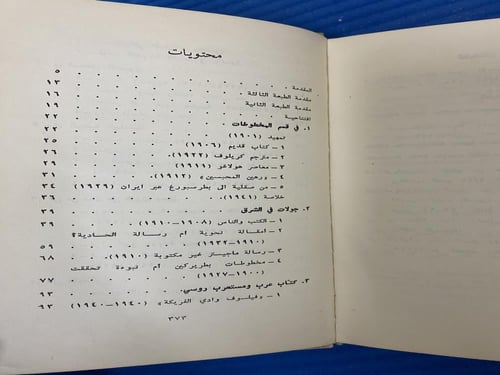 محتويات
المقدمة . . . . . . . . . . ٥
مقدمة الطبعة الثالثة . . . . . . . ١٣
مقدمة الطبعة الثانية . . . . . . . ١٦
افتتاحية . . . . . . . . . . ١٩
١. في قسم المخطوطات . . . . . . . ٢٢
تمهيد (١٩٠١) . . . . . . . . ٢٢
١- كتاب قديم (١٩٠٦) . . . . . . ٢٥
٢- مترجم كريلوف (١٩٢٢) . . . . . ٢٦
٣- معاصر هولاغو (١٩١١) . . . . . ٢٩
٤- «رهين المحبسين» (١٩١٢) . . . . ٣١
٥- من صقلية الى بطرسبورغ عبر ايران (١٩٢٦) ٣٤
خلاصة (١٩٤١) . . . . . . . . ٣٦
٢. جولات في الشرق . . . . . . . ٣٩
١- الكتب والناس (١٩٠٨-١٩١٠) . . . . ٣٩
٢- أمقالة نحوية أم رسالة الحادية؟
(١٩١٠-١٩٣٢) . . . . . . . ٥٩
٣- رسالة ماجيستر غير مكتوبة (١٩١٠) . . ٦٨
٤- مخطوطات بطريركين أم نبوءة تحققت
(١٩٠٠-١٩٢٧) . . . . . . . ٧٧
٣. كتاب عرب ومستعرب روسي. . . . . . ٩٣
١- «فيلسوف وادي الفريكة» (١٩١٠-١٩٤٠) ٩٣
٣٧٣